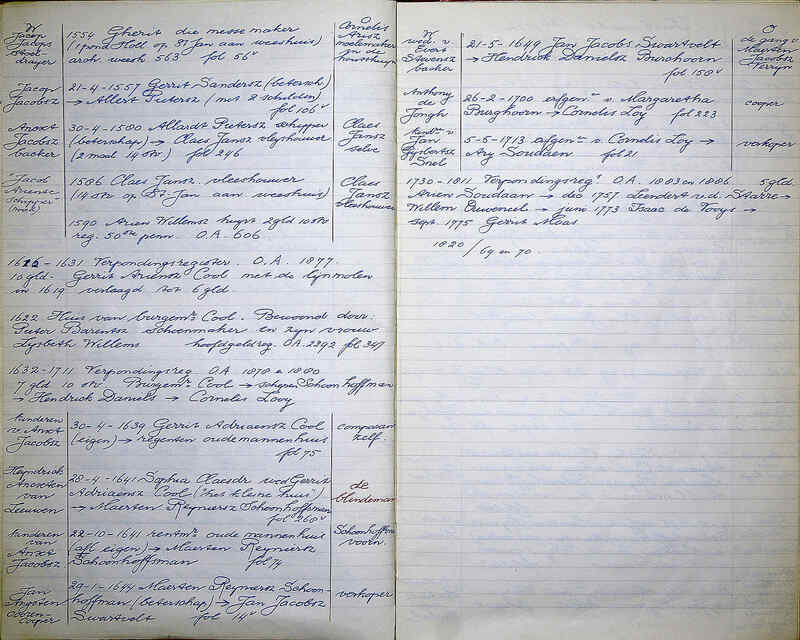 W
Jacop
Jacops
stoel
drayer
1554 Gherit die messemaker
(1 pond Holl op St Jan aan weeshuis)
arch. wesh 563 fol 56v
O
Cornelis
Arisz
in de
Jacop
Jacobsz
21-4-1557 Gerrit Sandersz (betersch)
→ Allert Pietersz (met 2 schilden)
fol 106v
Anoxt
Jacobsz
backer
30-4-1580 Allardt Pietersz schipper
(beterschap) → Claes Jansz vleyshouwer
(2 maal 14 str) fol 296
Claes
Jansz
selve
Jacob
Ariensz
schipper
1586 Claes Jansz. vleeshouwer
(14 str op St Jan aan weeshuis)
Claes
Jansz
vleeshouwer
1590 Arien Willemsz huyst 2gld 10 str
reg. 50ste penn. O.A. 606
1626 - 1631 Verpondingsregister. O.A. 1877.
10 gld. Gerrit Ariensz Cool met de lynmolen
in 1619 verlaagd tot 6 gld.
1622 Huis van burgemr Cool. Bewoond door:
Pieter Barentsz Schoenmaker en zyn vrouw
Lysbeth Willems hoofdgeldreg. O.A. 2392 fol 347
1632-1711 Verpondingsreg. O.A. 1878 a 1880
7 gld 10 str Burgemr Cool → schepen Schoonhoffman
→ Hendrick Daniels → Cornelis Looy
kinderen
v. Anxt
Jacobsz
30-4-1639 Gerrit Adriaensz Cool
(eigen) → regenten oudemannenhuis
fol 75
comparant
zelf.
Heyndrick
Anoxten
van
Leeuwen
28-4-1641 Sophia Claesdr wed Gerrit
Adriaensz Cool ("het kleine huis")
→ Maerten Reynersz Schoonhoffman
fol 268v
de
blindeman
kinderen
van
Anxt
Jacobsz
22-10-1641 rentmr oude mannenhuis
(afl eigen) → Maerten Reynersz
Schoonhoffman fol 74
Schoonhoffman
voorn.
Jan
coper
29-1-1644 Maerten Reynersz Schoon-
hoffman (beterschap) → Jan Jacobsz
Swartvelt fol 14v
verkoper
W
wed. v.
Evert
Stevensz
backer
21-5-1649 Jan Jacobs Swartvelt
→ Hendrick Danielsz Burchoorn
fol 158v
O
de gang v.
Maerten
Jacobsz
Anthony
de
Jongh
26-2-1700 erfgen. v. Margaretha
Burghoorn → Cornelis Loy fol 223
coper
Jan
Gysbertsz
Snel
5-5-1713 erfgen. v. Cornelis Loy →
Ary Soudaen fol 21
verkoper
1730-1811 Verpondingsregr O.A. 1883 en 1886 5 gld.
Arien Soudaan → dec 1757 Leendert v.d. Starre →
Willem Ouweneel → juni 1773 Isaac de Tooys →
sept. 1775 Gerrit Maas
1820 / 69 en 70.